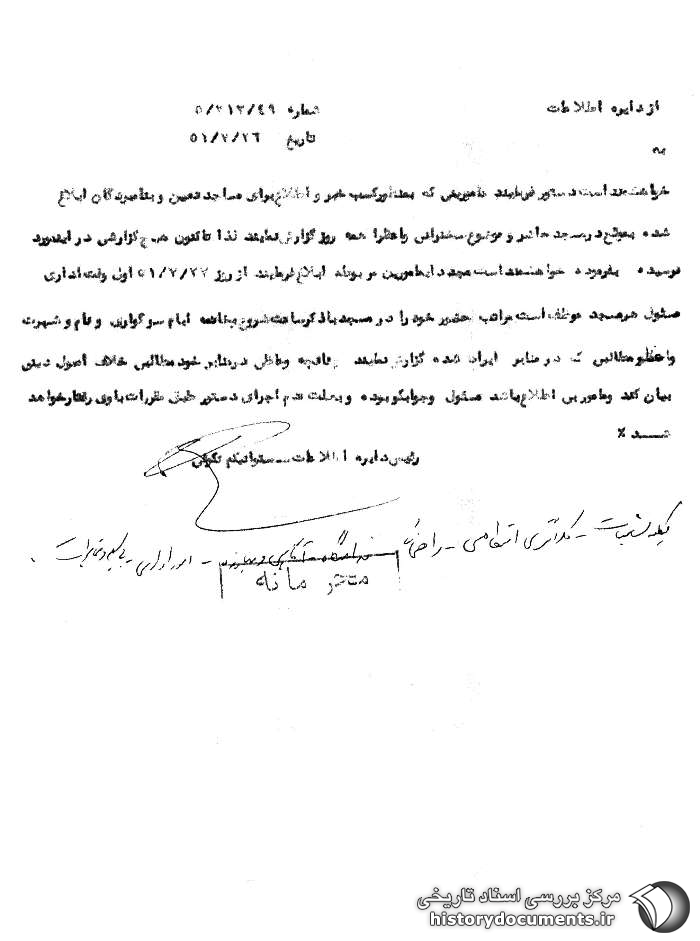 از دایره اطلاعات
شماره ۵/۲۱۲/۴۹
تاریخ ۵۱/۷/۲۶
به
خواهشمند است دستور فرمایند مامورینی که بمنظور کسب خبر و اطلاع برای مساجد تعیین و بنامبردگان ابلاغ
شده بموقع در مسجد حاضر و موضوع سخنرانی واعظ را همه روز گزارش نمایند لذا تاکنون هیچ گزارشی در اینمورد
نرسیده بفرموده خواهشمند است مجدد ابمامورین مربوطه ابلاغ فرمایند از روز ۵۱/۷/۲۷ اول وقت اداری
مسئول هر مسجد موظف است مراتب حضور خود را در مسجد با ذکر ساعت شروع و خاتمه ایام سوگواری و نام و شهرت
واعظ و مطالبی که در منابر ایراد شده گزارش نمایند چنانچه وعاظی در منابر خود مطالبی خلاف اصول دینی
بیان کند و مامور بی اطلاع باشد مسئول وجوابگو بوده و بعلت عدم اجرای دستور طبق مقررات با وی رفتار خواهد
شد ٪
رئیس دایره اطلاعات - ستوانیکم
کلانتری انتظامی - راهنمائی - آگاهی
محرمانه
مرکز بررسی اسناد تاریخی
historydocuments.ir